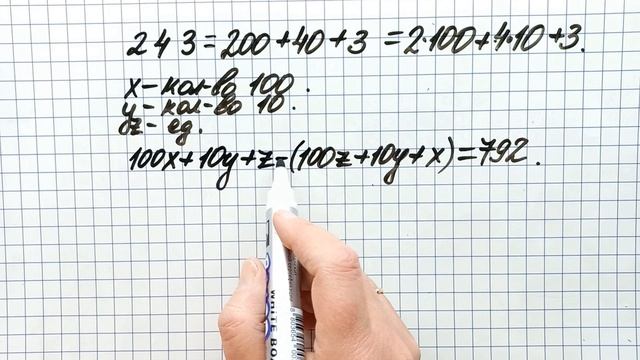 243 = 200 + 40 + 3 = 2·100 + 4·10 + 3.
x – кол-во 100.
y – кол-во 10.
z – ед.
100x + 10y + z = (100z + 10y + x) = 792.
WHITE BO